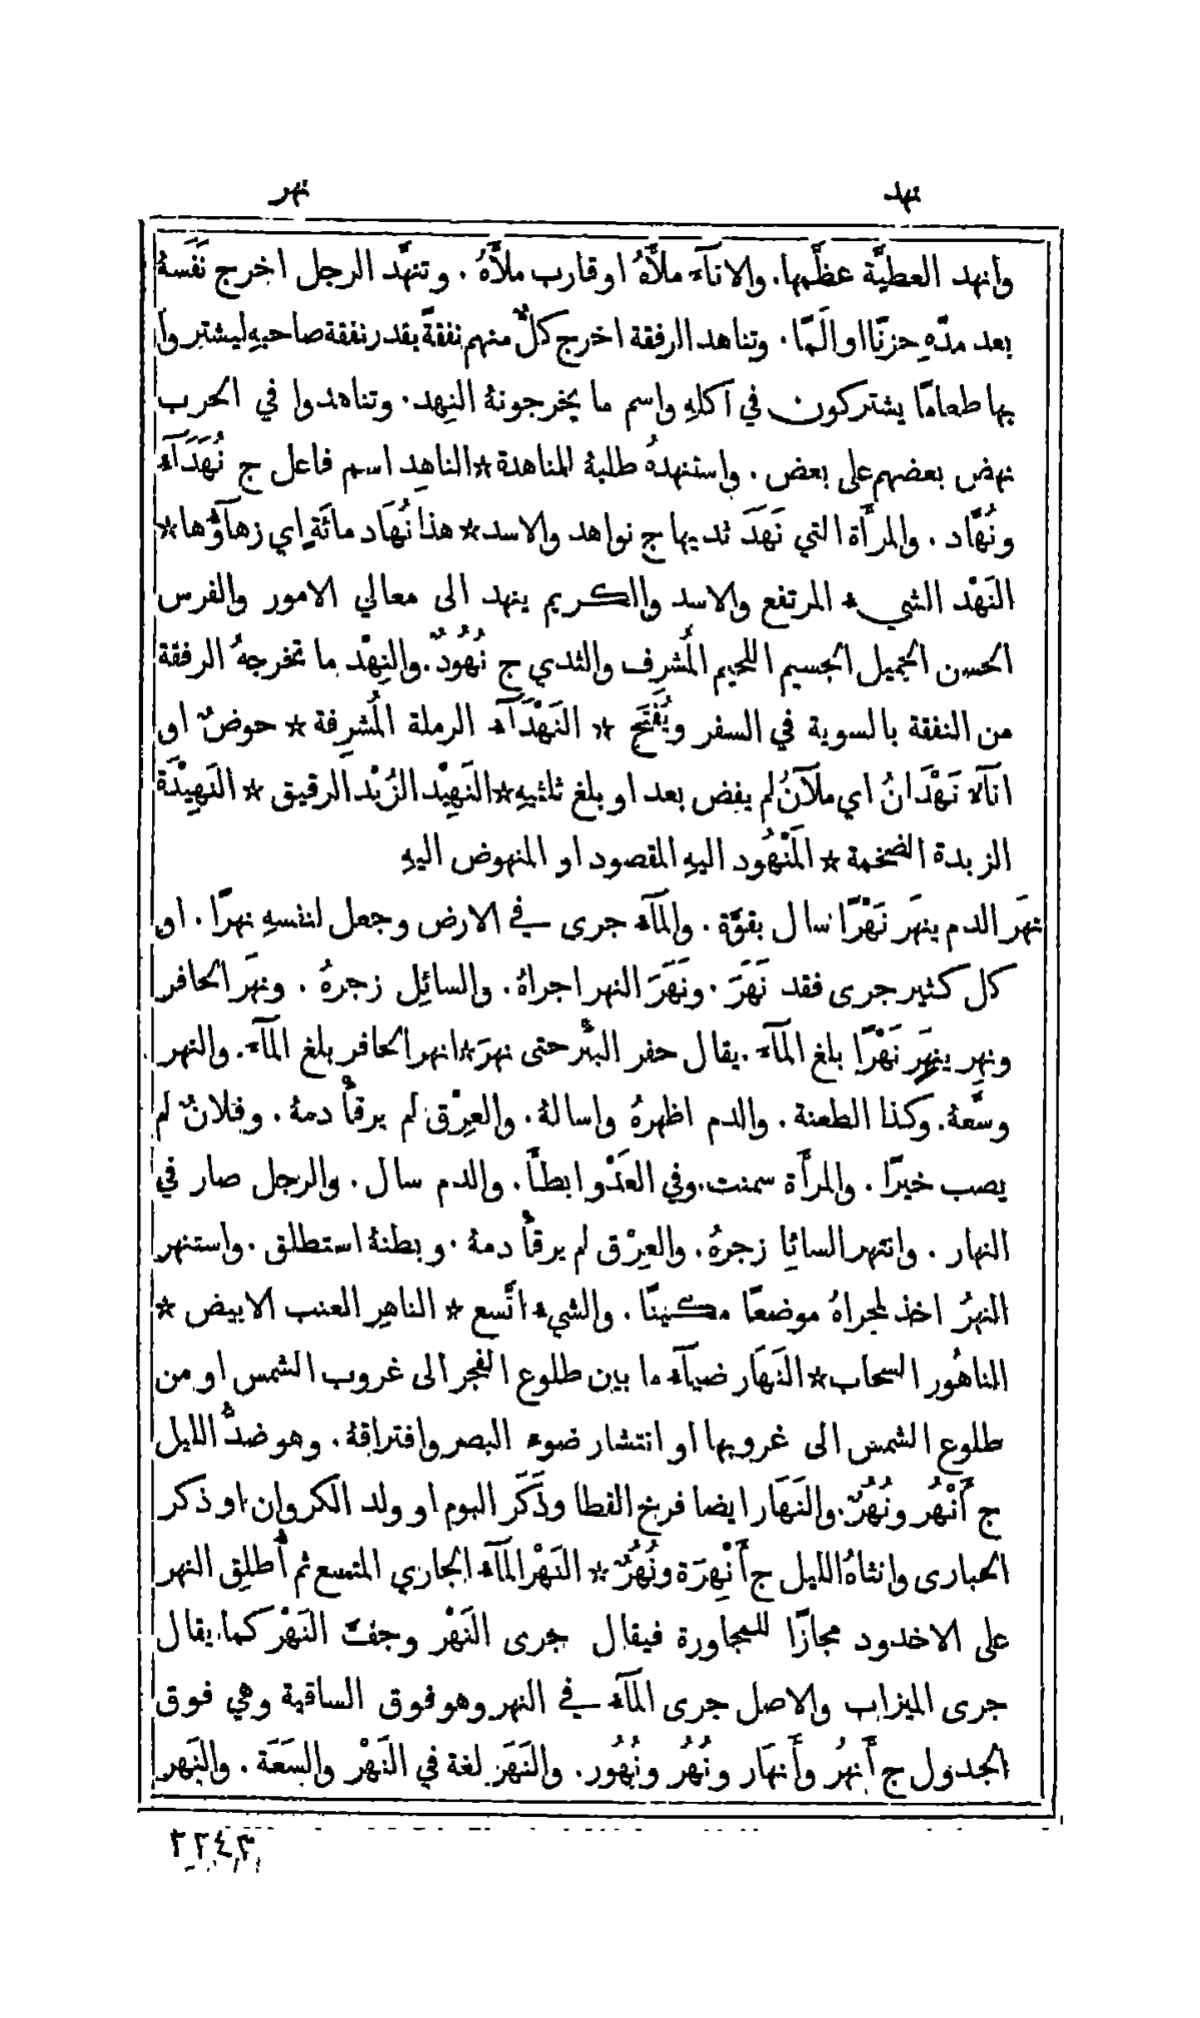 نهد
نهر
وانهد العطيَّة عظَّمها. والاناۤء ملأَهُ او قارب ملأَهُ. وتنهَّد الرجل اخرج نَفَسهُ
بعد مدّهِ حزنًا او المًا. وتناهد الرفقة اخرج كلٌّ منهم نفقةً بقدر نفقة صاحبهِ ليشتروا
بها طعامًا يشتركون في اكلهِ واسم ما يخرجونهُ النِهد. وتناهدوا في الحرب
نهض بعضهم على بعض. واستنهدهُ طلبهُ للمناهدة ☆ الناهِد اسم فاعل ج نُهَدَاۤء
ونُهَّاد. والمرأَة التي نَهَدَ ثديها ج نواهد والاسد ☆ هذا نُهَاد مائَةٍ اي زهاۤؤُها ☆
النَهْد الشيء المرتفع والاسد والكريم ينهد الى معالي الامور والفرس
الحسن الجميل الجسيم اللحيم المُشرِف والثدي ج نُهُودٌ. والنِهْد ما تخرجهُ الرفقة
من النفقة بالسوية في السفر ويُفْتَح ☆ النَهْدَاۤء الرملة المُشرِفة ☆ حوضٌ او
اناۤء نَهْدَانُ اي ملآنُ لم يفض بعد او بلغ ثلثيهِ ☆ النَهِيْد الزُبْد الرقيق ☆ النَهِيْدَة
الزبدة الضخمة ☆ المَنْهُود اليهِ المقصود او المنهوض اليهِ
نهَر الدم ينهَر نَهْرًا سال بقوَّة. والماۤء جرى في الارض وجعل لنفسهِ نهرًا. او
كل كثير جرى فقد نَهَرَ. ونَهَرَ النهر اجراهُ. والسائِل زجرهُ. ونهَر الحافر
ونهِر ينهَر نَهْرًا بلغ الماۤء. يقال حفر البئر حتى نهرَ ☆ انهر الحافر بلغ الماۤء. والنهر
وسَّعهُ. وكذا الطعنة. والدم اظهرهُ واسالهُ. والعِرْق لم يرقأْ دمهُ. وفلانٌ لم
يصب خيرًا. والمرأَة سمنت. وفي العَدْو ابطأَ. والدم سال. والرجل صار في
النهار. وانتهر السائِل زجرهُ. والعِرْق لم يرقأْ دمهُ. وبطنهُ استطلق. واستنهر
النهرُ اخذ لمجراهُ موضعًا مكينًا. والشيء اتَّسع ☆ الناهِر العنب الابيض ☆
الناهُور السحاب ☆ النَهَار ضياۤء ما بين طلوع الفجر الى غروب الشمس او من
طلوع الشمس الى غروبها او انتشار ضوء البصر وافتراقهُ. وهو ضدُّ الليل
ج أَنْهُر ونُهُرٌ. والنَهَار ايضا فرخ القطا وذَكَر البوم او ولد الكروان او ذكر
الحبارى وانثاهُ الليل ج أَنْهِرَة ونُهُرٌ ☆ النَهْر الماۤء الجاري المتسع ثم أُطلِق النهر
على الاخدود مجازًا للمجاورة فيقال جرى النَهْر وجفَّ النَهْر كما يقال
جرى الميزاب والاصل جرى الماۤء في النهر وهو فوق الساقية وهي فوق
الجدول ج أَنهُر وأَنهَار ونُهُر ونُهُور. والنَهَر لغة في النَهْر والسَعَة. والنَهِر
٢٢٤٣